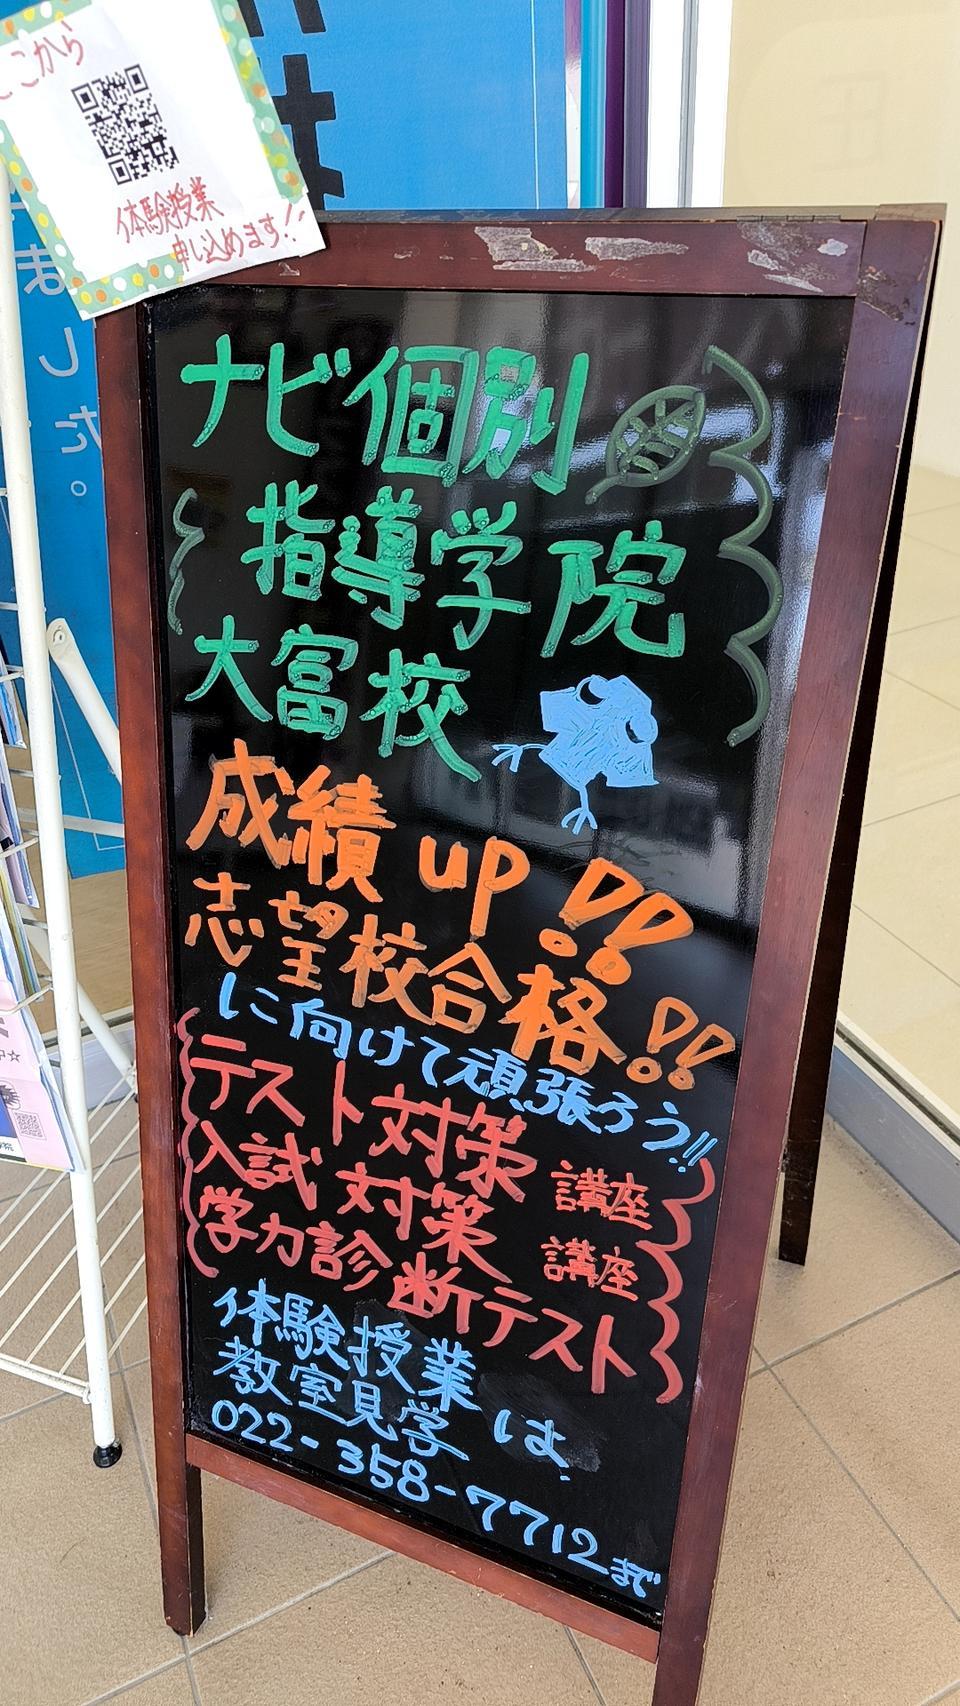 ここから
体験授業
申し込めます!!
ました。
ナビ個別
指導学院
大富校
成績up!!
志望校合格!!
に向けて頑張ろう!!
テスト対策 講座
入試対策 講座
学力診断テスト
体験授業
教室見学は、
022-358-7712まで